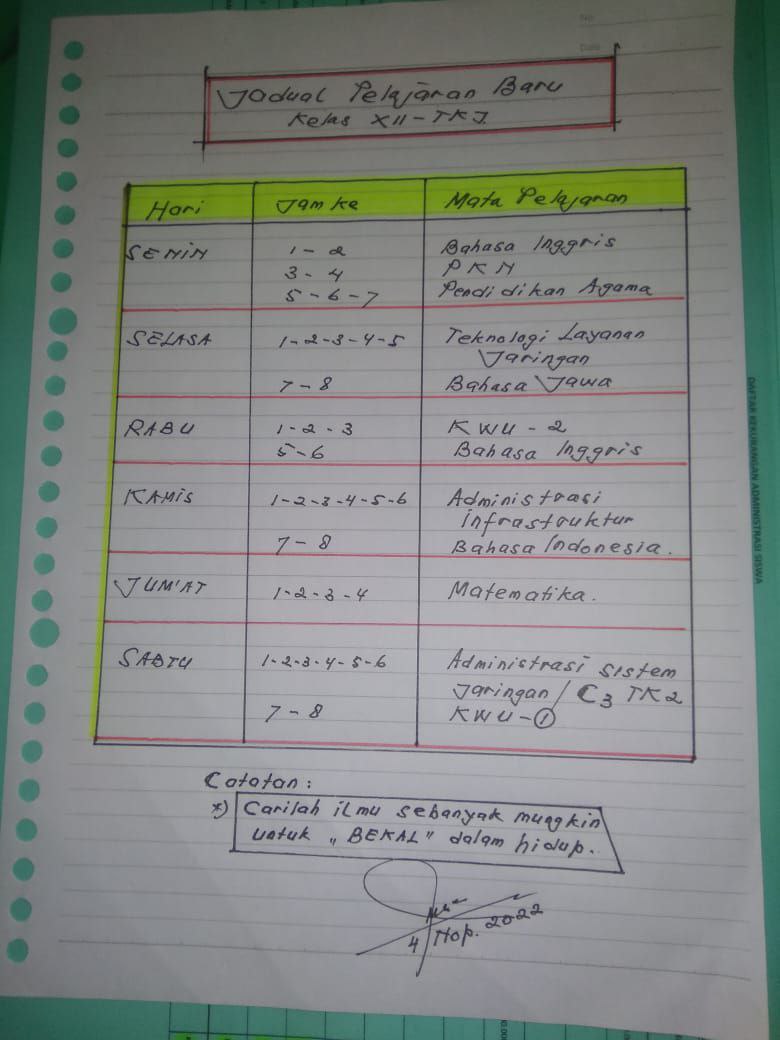 No
Date
Jadual Pelajaran Baru
Kelas XII-TKJ
Hari Jam ke Mata Pelajaran
SENIN 1-2 Bahasa Inggris
3-4 PKN
5-6-7 Pendidikan Agama
SELASA 1-2-3-4-5 Teknologi Layanan
Jaringan
7-8 Bahasa Jawa
RABU 1-2-3 KWU-2
5-6 Bahasa Inggris
KAMIS 1-2-3-4-5-6 Administrasi
infrastruktur
7-8 Bahasa Indonesia.
JUM'AT 1-2-3-4 Matematika.
SABTU 1-2-3-4-5-6 Administrasi sistem
Jaringan / C3 TK2
7-8 KWU-①
Catatan:
*) Carilah ilmu sebanyak mungkin
untuk „BEKAL" dalam hidup.
4 Nop. 2022
DAFTAR KEKURANGAN ADMINISTRASI SISWA